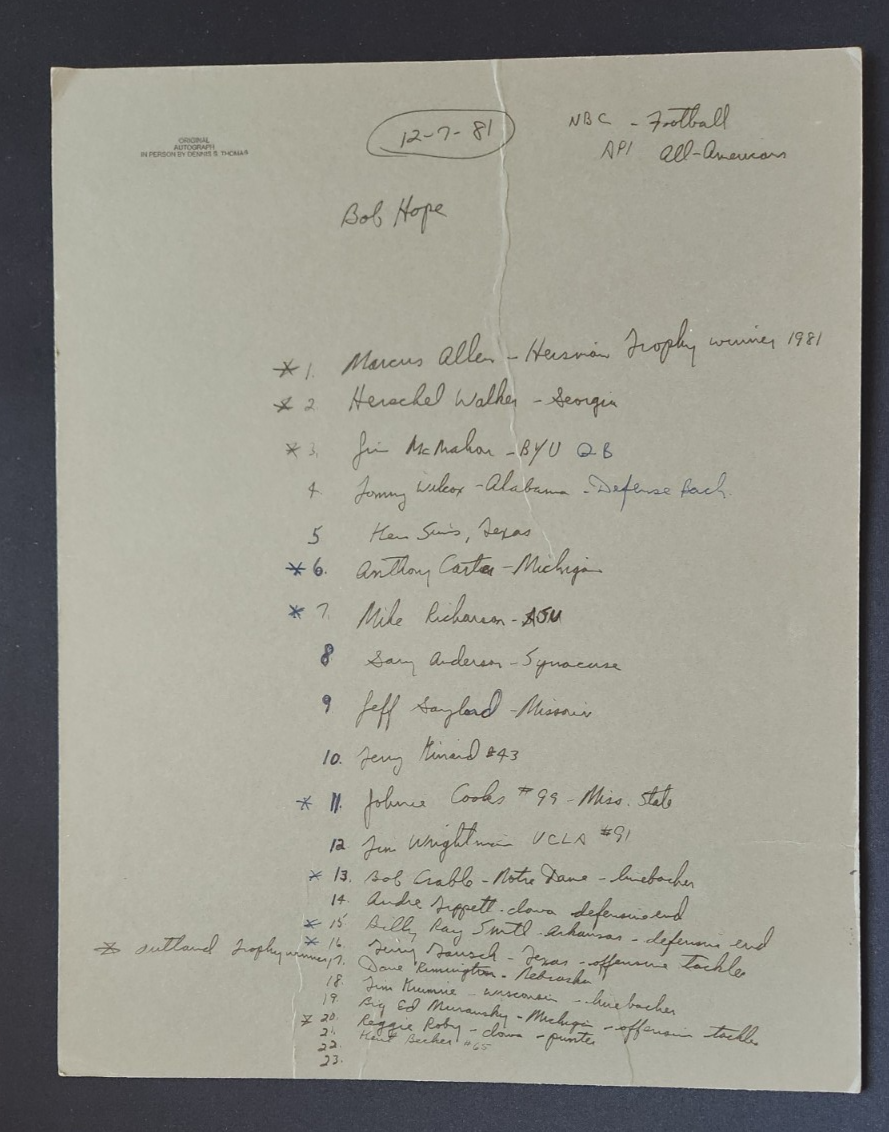 ORIGINAL
AUTOGRAPH
IN PERSON BY DENNIS S. THOMAS
12-7-81
NBC - Football
AP1 All-Americans
Bob Hope
* 1. Marcus Allen - Hersman Trophy winner 1981
* 2 Herschel Walker - Georgia
* 3. Jim McMahon - BYU QB
4. Tommy Wilcox - Alabama - Defense Back
5 Ken Sims, Texas
* 6. Anthony Carter - Michigan
* 7. Mike Richarson - ASU
8 Gary Anderson - Syracuse
9 Jeff Gaylord - Missouri
10. Terry Kinard #43
* 11. Johnie Cooks #99 - Miss. State
12 Tim Wrightman UCLA #91
* 13. Bob Crable - Notre Dame - linebacker
14. Andre Tippett - Iowa defensive end
* 15. Billy Ray Smith - Arkansas - defensive end
* 16. Terry Tausch - Texas - offensive tackle
* outland trophy winner 17. Dave Rimington - Nebraska
18. Tim Krumrie - wisconsin - linebacker
19. Big Ed Muransky - Michigan - offensive tackle
* 20. Reggie Roby - Iowa - punter
21. Kurt Becker #65
22
23.